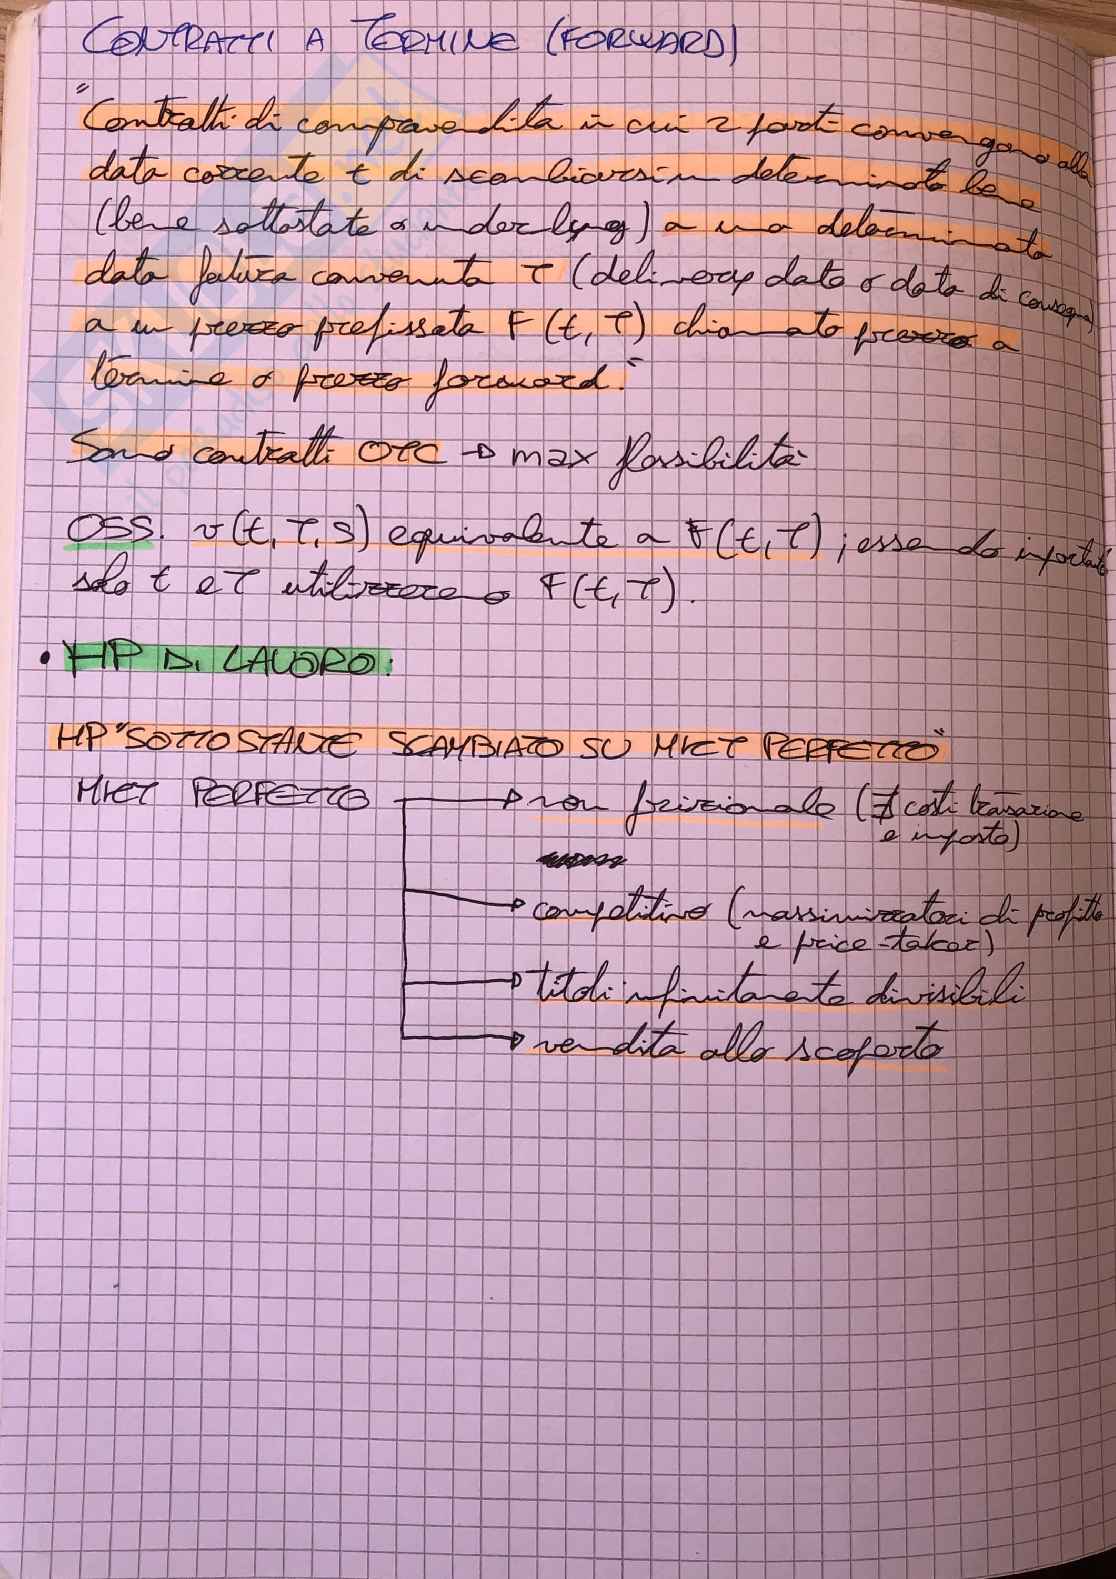 CONTRATTI A TERMINE (FORWARD)
"Contratti di compravendita in cui 2 parti convengono alla
data corrente t di scambiarsi un determinato bene
(bene sottostate o underlyng) a una determinata
data futura convenuta T (delivery date o data di consegna)
a un prezzo prefissato F(t,T) chiamato prezzo a
termine o prezzo forward."
Sono contratti OTC → max flessibilità
OSS. v(t,T,S) equivalente a F(t,T); essendo importanti
solo t e T utilizzeremo F(t,T).
• HP DI LAVORO:
HP "SOTTOSTANTE SCAMBIATO SU MKT PERFETTO"
MKT PERFETTO → non frizionale (∄ costi transazione
e imposte)
→ competitivo (massimizzatori di profitto
e price-taker)
→ titoli infinitamente divisibili
→ vendita allo scoperto